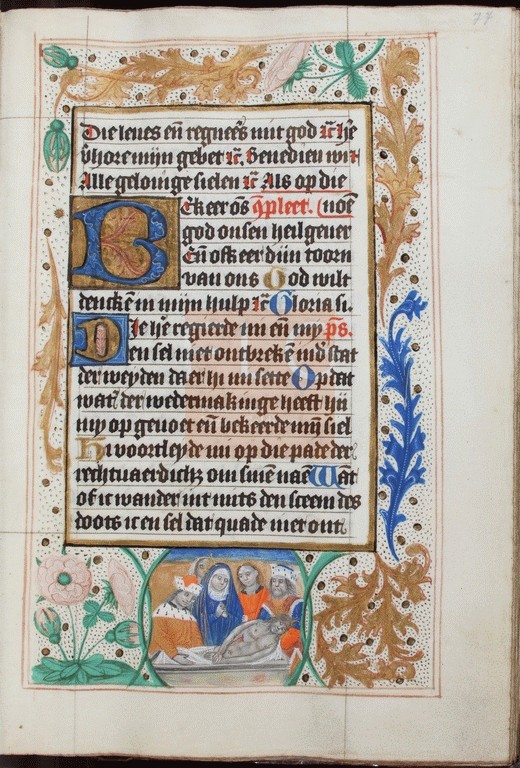 77
Die leues en̄ regneeˢ mit god ꝛc̄ hr̄e
v̄hore mijn gebet ꝛc̄. Benedien wir
Alle gelouige sielen ꝛc̄ Als op die
BEkeer ōs 9pleet. noē
god onsen heilgeuer
En̄ ofkeer dijn toorn
van ons God wilt
denckē in mijn hulp ꝛc̄ Gloria si.
DIe hr̄e regierde mi en̄ my ps̄.
en sel niet ontbrekē ind̄ stat
der weyden daer hi mi sette Op dat
wat̄ der wedermakinge heeft hi
my op geuoet en̄ bekeerde mijn siel
Hi voortleyde mi op die pade der
rechtuaerdich; om sinē naē Want
of ic wander int mits den sceem des
doots ic en sel dat quade niet ont